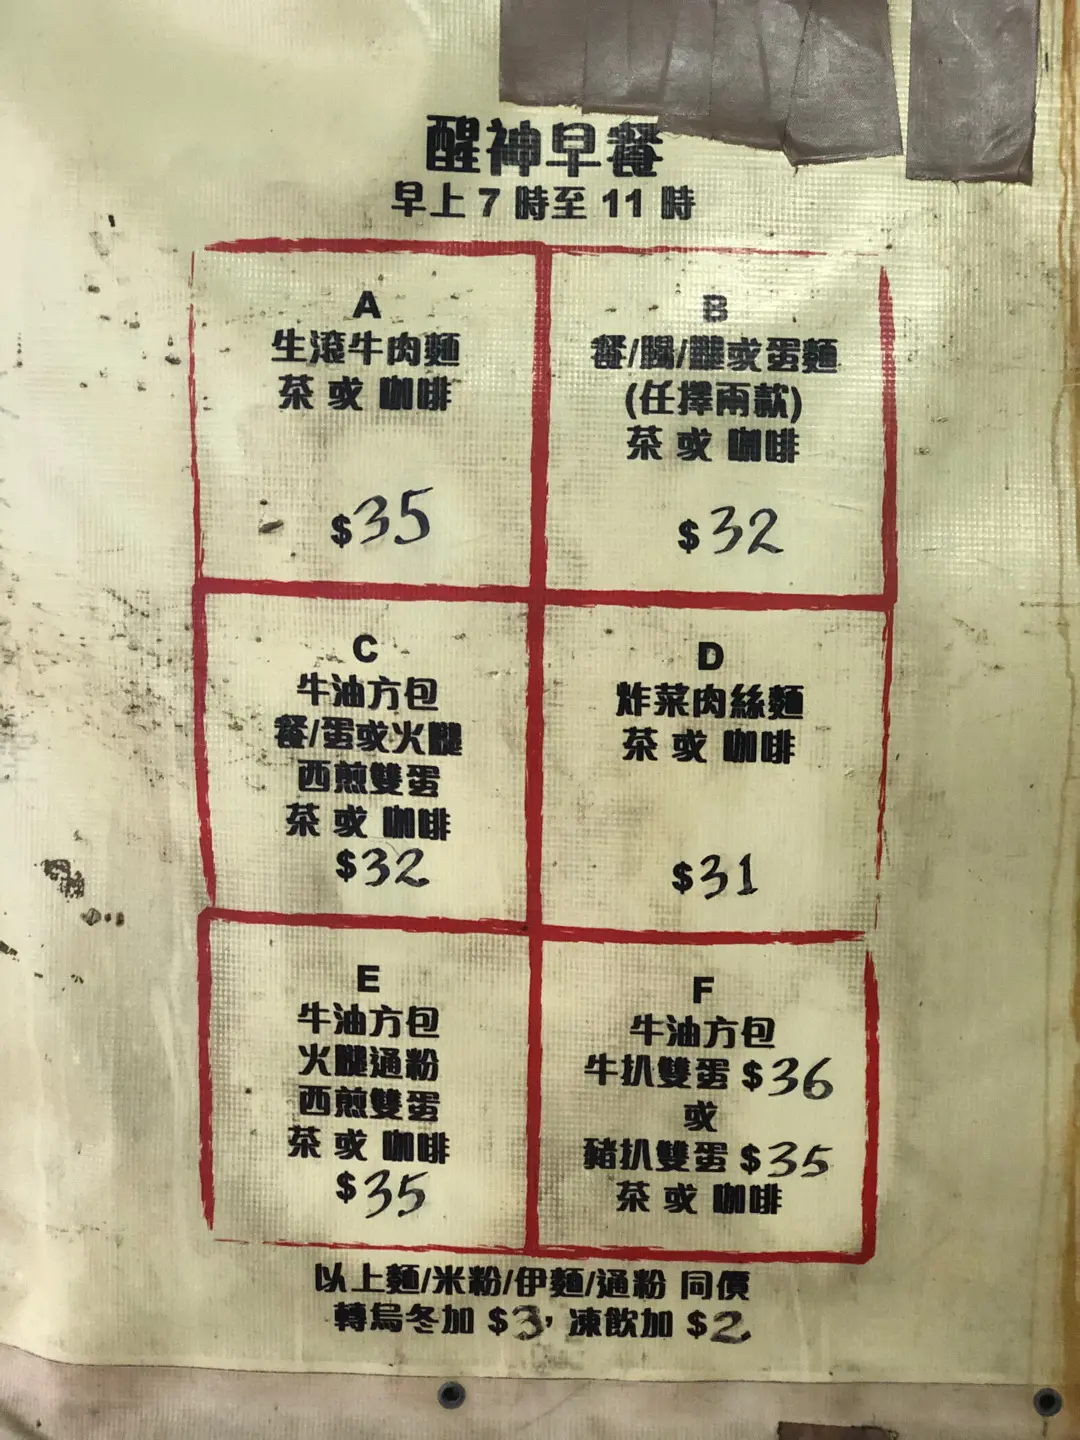 醒神早餐
早上 7 時至 11 時
A
生滾牛肉麵
茶 或 咖啡
$35
B
餐/腸/腿或蛋麵
(任擇兩款)
茶 或 咖啡
$32
C
牛油方包
餐/蛋或火腿
西煎雙蛋
茶 或 咖啡
$32
D
炸菜肉絲麵
茶 或 咖啡
$31
E
牛油方包
火腿通粉
西煎雙蛋
茶 或 咖啡
$35
F
牛油方包
牛扒雙蛋 $36
或
豬扒雙蛋 $35
茶 或 咖啡
以上麵/米粉/伊麵/通粉 同價
轉烏冬加 $3, 凍飲加 $2